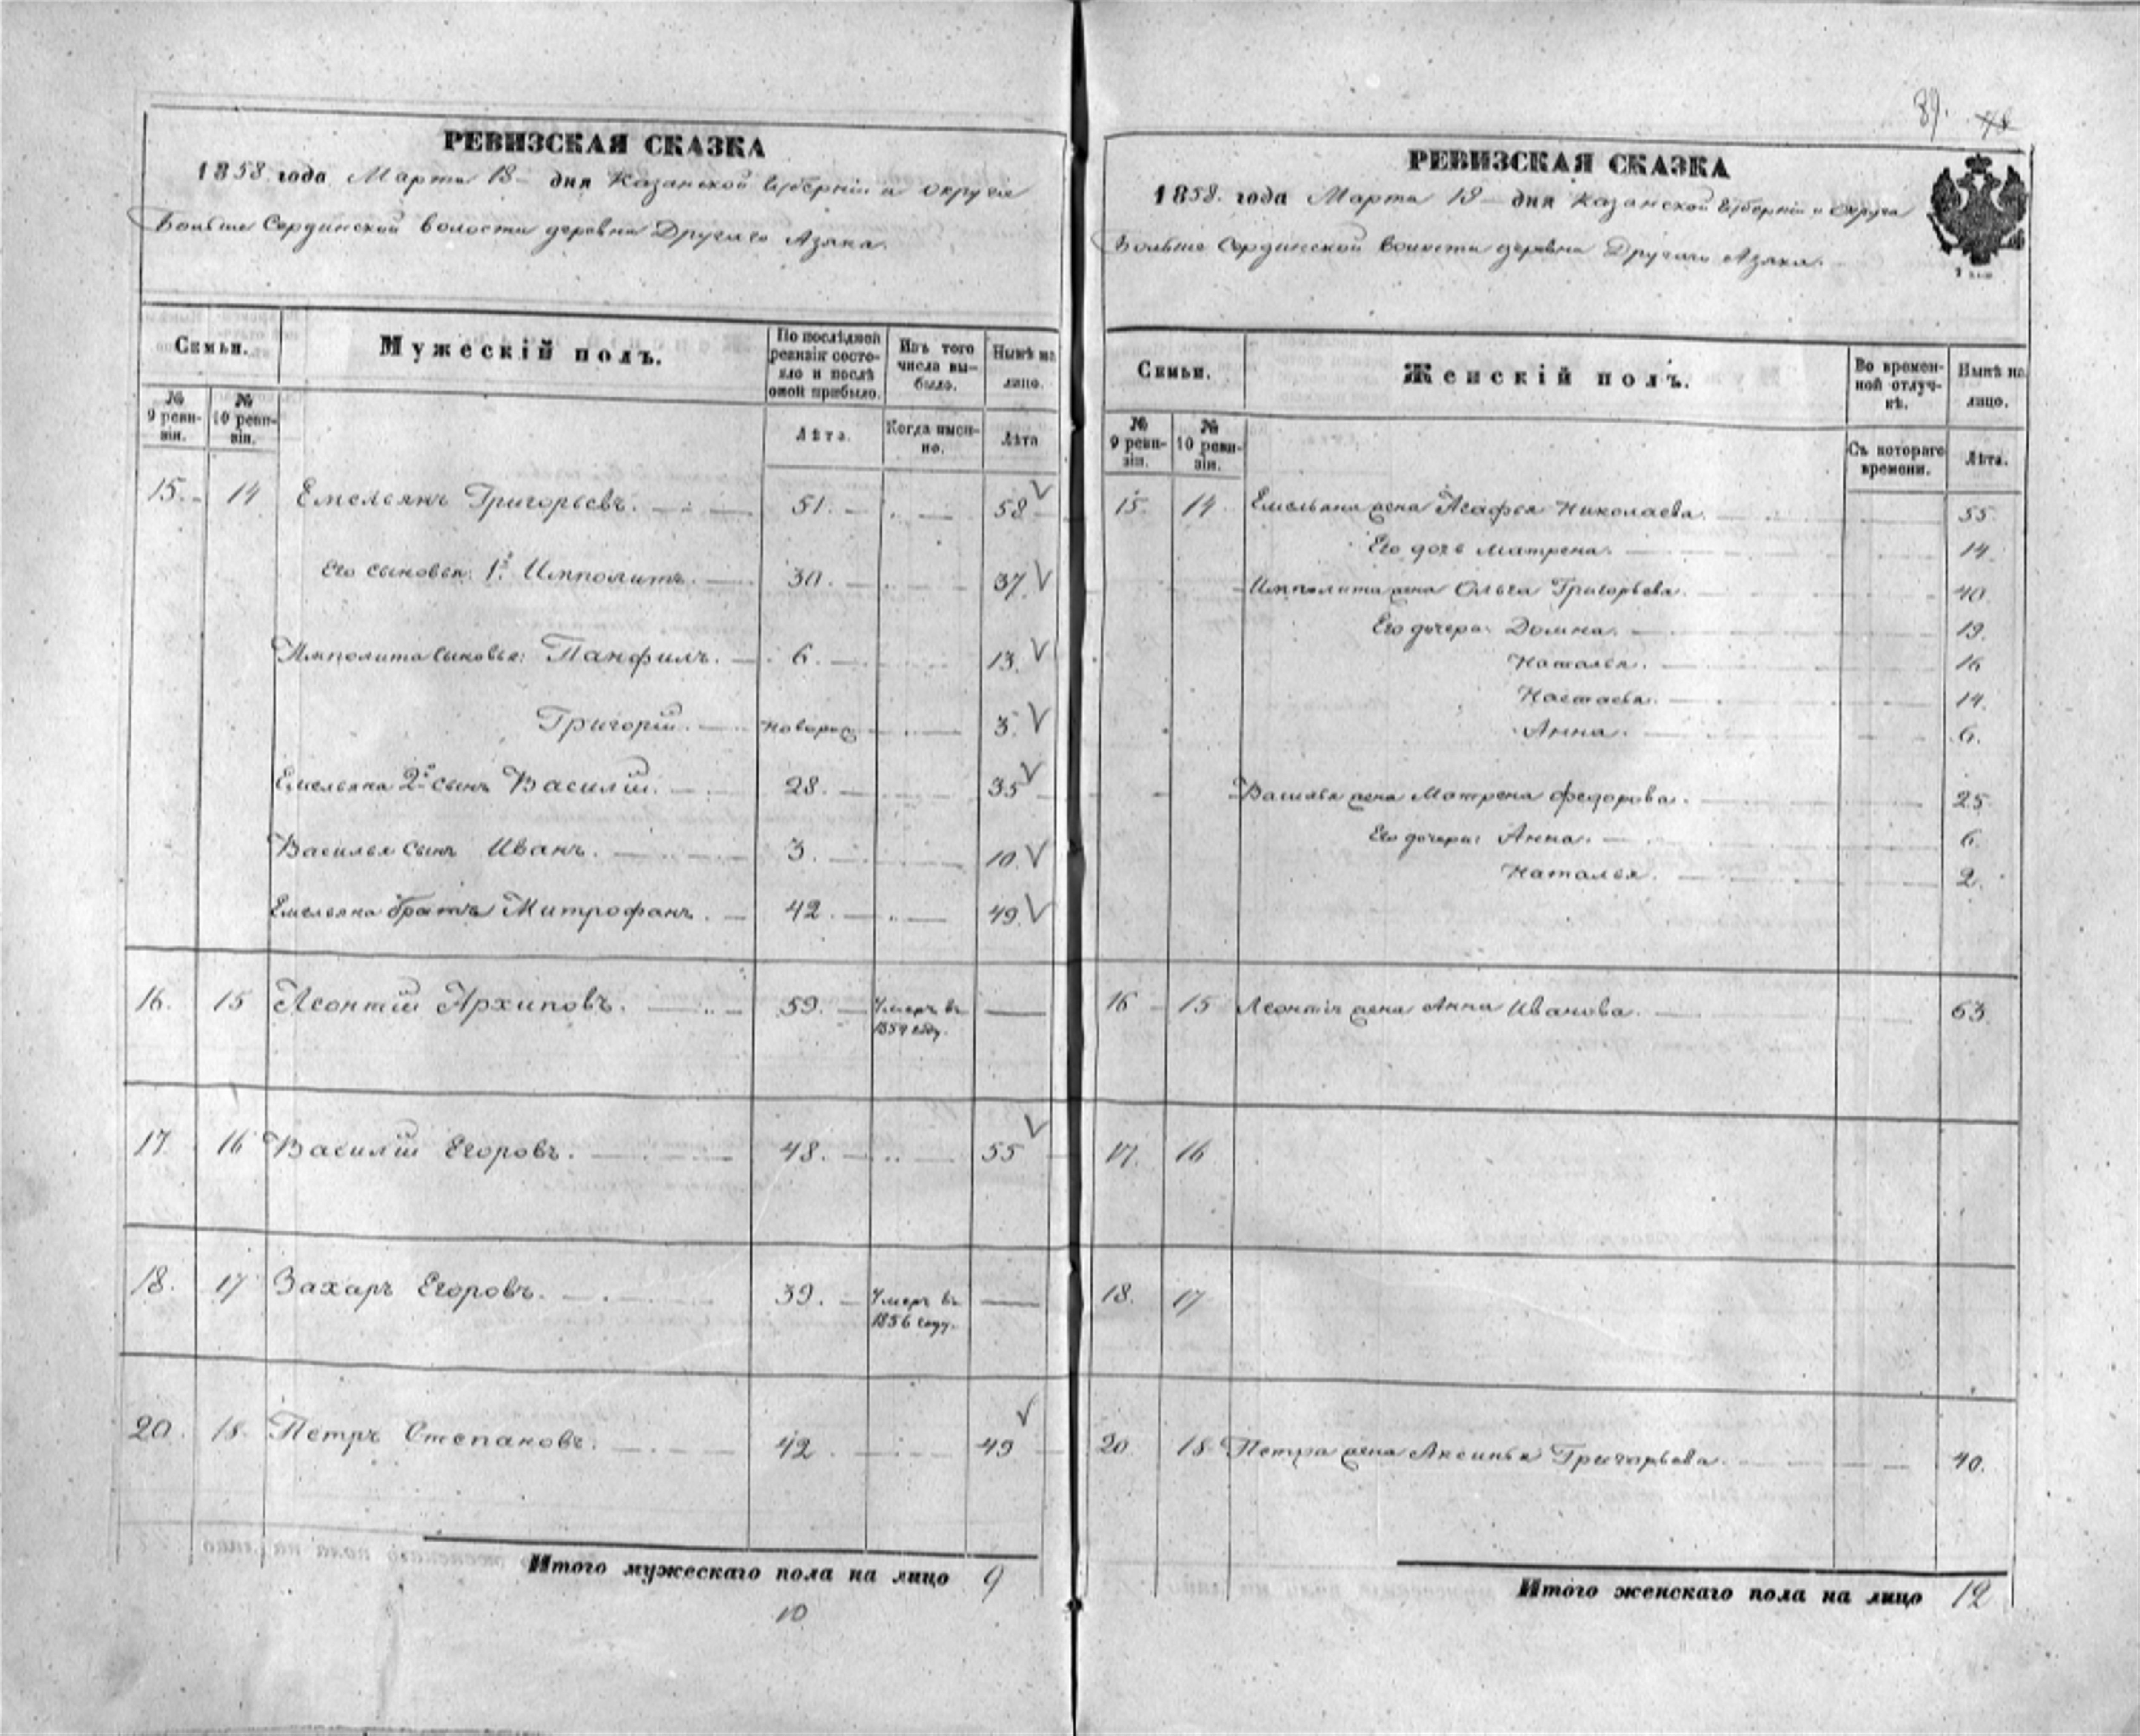 РЕВИЗСКАЯ СКАЗКА
1858 года Марта 18 дня Казанской Губернiи и округа
Больше Сердинской волости деревни Другаго Азяка.
Семьи.
Мужескiй полъ.
По послѣдней ревизiи состояло и послѣ оной прибыло.
Изъ того числа выбыло.
Нынѣ на лицо.
№ 9 ревизiи.
№ 10 ревизiи.
Лѣта.
Когда именно.
Лѣта
15. 14 Емельянъ Григорьевъ. 51. 58
Его сыновья: 1й Ипполитъ. 30. 37.
Ипполита сыновья: Панфилъ. 6. 13.
Григорiй. новорож 3.
Емельяна 2й сынъ Василiй. 28. 35
Василья сынъ Иванъ. 3. 10.
Емельяна братъ Митрофанъ. 42. 49.
16. 15 Леонтiй Архиповъ. 59. Умеръ въ
году.
17. 16 Василiй Егоровъ. 48. 55
18. 17 Захаръ Егоровъ. 39. Умеръ въ
1856 году.
20. 18. Петръ Степановъ. 42. 49
Итого мужескаго пола на лицо 9
10
89. 
РЕВИЗСКАЯ СКАЗКА
1858. года Марта 18 дня Казанской Губернiи и Округа
Больше Сердинской волости деревни Другаго Азяка.
Семьи.
Женскiй полъ.
Во временной отлучкѣ.
Нынѣ на лицо.
№ 9 ревизiи.
№ 10 ревизiи.
Съ котораго времени.
Лѣта.
15. 14 Емельяна жена Агафья Николаева. 55.
Его дочь Матрена. 14.
Ипполита жена Ольга Григорьева. 40.
Его дочери: Домна. 19.
Наталья. 16
Настасья. 14.
Анна. 6.
Василья жена Матрена Федорова. 25
Его дочери: Анна. 6.
Наталья. 2.
16 15 Леонтiя жена Анна Иванова. 63.
17. 16
18. 17
20. 18. Петра жена Аксинья Григорьева. 40.
Итого женскаго пола на лицо 12